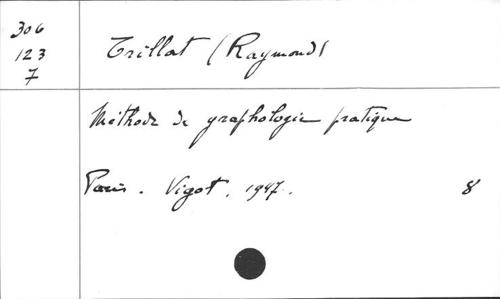 306
123
7
Trillat (Raymond)
Méthode de graphologie pratique
Paris. Vigot. 1947. 8